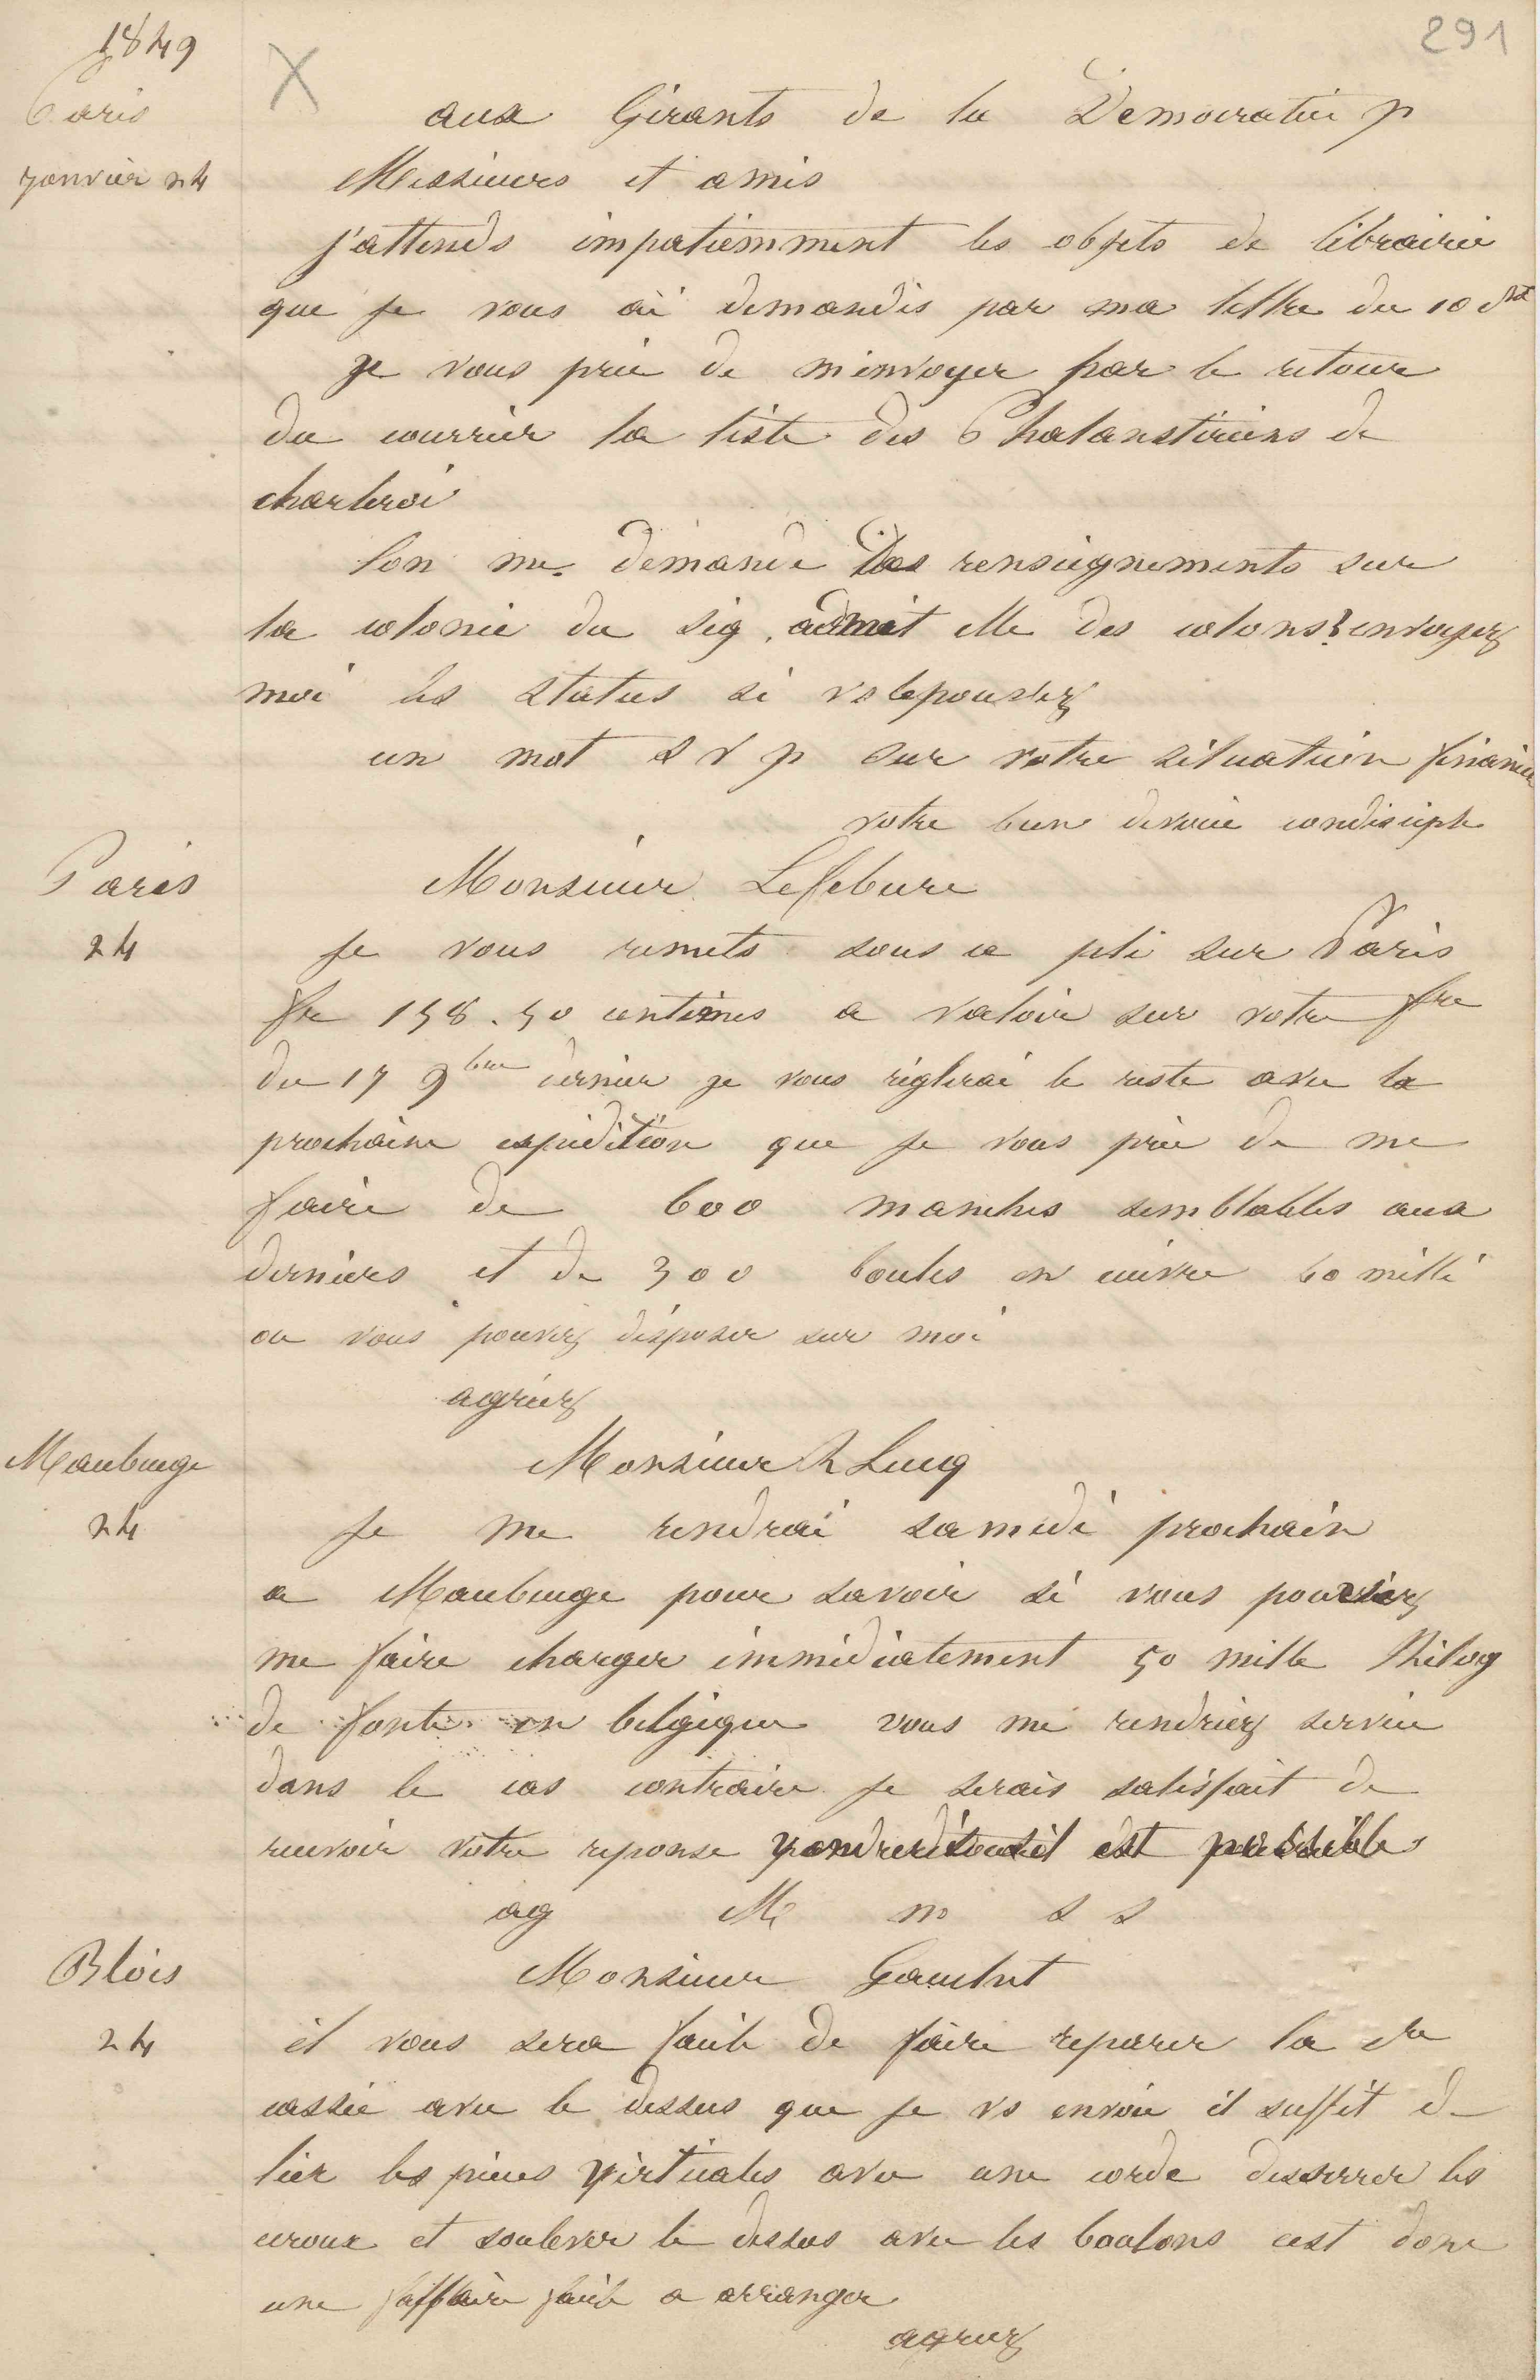 1849
291
X
Paris
janvier 24
aux Gérants de la Democratie p
Messieurs et amis
j'attends impatiemment les objets de librairie
que je vous ai demandés par ma lettre du 10 ct
je vous prie de m'envoyer par le retour
du courrier la liste des Phalanstériens de
charleroi
l'on me demande des renseignements sur
la colonie du sig. admet elle des colons? envoyez
moi les status si vs le pouvez
un mot s v p sur votre situation financiè
votre bien devoué condisciple
Paris
24
Monsieur Lefebure
je vous remets sous ce pli sur Paris
fr 158.50 centimes a valoir sur votre fre
du 17 9bre dernier je vous réglerai le reste avec la
prochaine expédition que je vous prie de me
faire de 600 manches semblables aux
derniers et de 300 boules en cuivre 60 milli
ou vous pouvez disposer sur moi
agréez
Maubeuge
24
Monsieur R Lucq
je me rendrai samedi prochain
a Maubeuge pour savoir si vous pouviez
me faire charger immédiatement 50 mille Kilog
de fonte en belgique vous me rendriez service
dans le cas contraire je serais satisfait de
recevoir votre reponse vendredi s'il est possible
ag M m s s
Blois
24
Monsieur Gauclut
il vous sera facile de faire reparer la
cassée avec le dessus que je vs envoie il suffit de
lier les pieces verticales avec une corde desserrer les
ecroux et soulever le dessus avec les boulons cest donc
une affaire facile a arranger
agreez